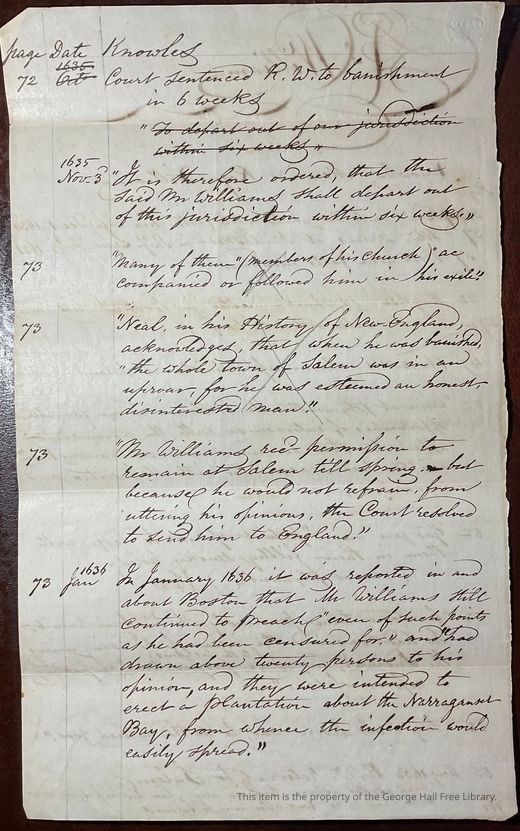 page Date Knowles
72 1635 Oct Court sentenced R. W. to banishment
in 6 weeks
" To depart out of our jurisdiction
within six weeks "
1635
Nov. 3 "It is therefore ordered, that the
said Mr Williams shall depart out
of this jurisdiction within six weeks."
73 "Many of them" (members of his church) "ac
companied or followed him in his exile."
73 "Neal, in his History of New England,
acknowledges, that when he was banished,
"the whole town of Salem was in an
uproar, for he was esteemed an honest,
disinterested man."
73 "Mr Williams recd permission to
remain at Salem till spring, but
because he would not refrain, from
uttering his opinions, the Court resolved
to send him to England."
73 1636 Jan In January 1636 it was reported in and
about Boston that Mr Williams still
continued to preach, "even of such points
as he had been censured for," and "had
drawn above twenty persons to his
opinion, and they were intended to
erect a plantation about the Narraganset
Bay, from whence the infection would
easily spread."
This item is the property of the George Hail Free Library.